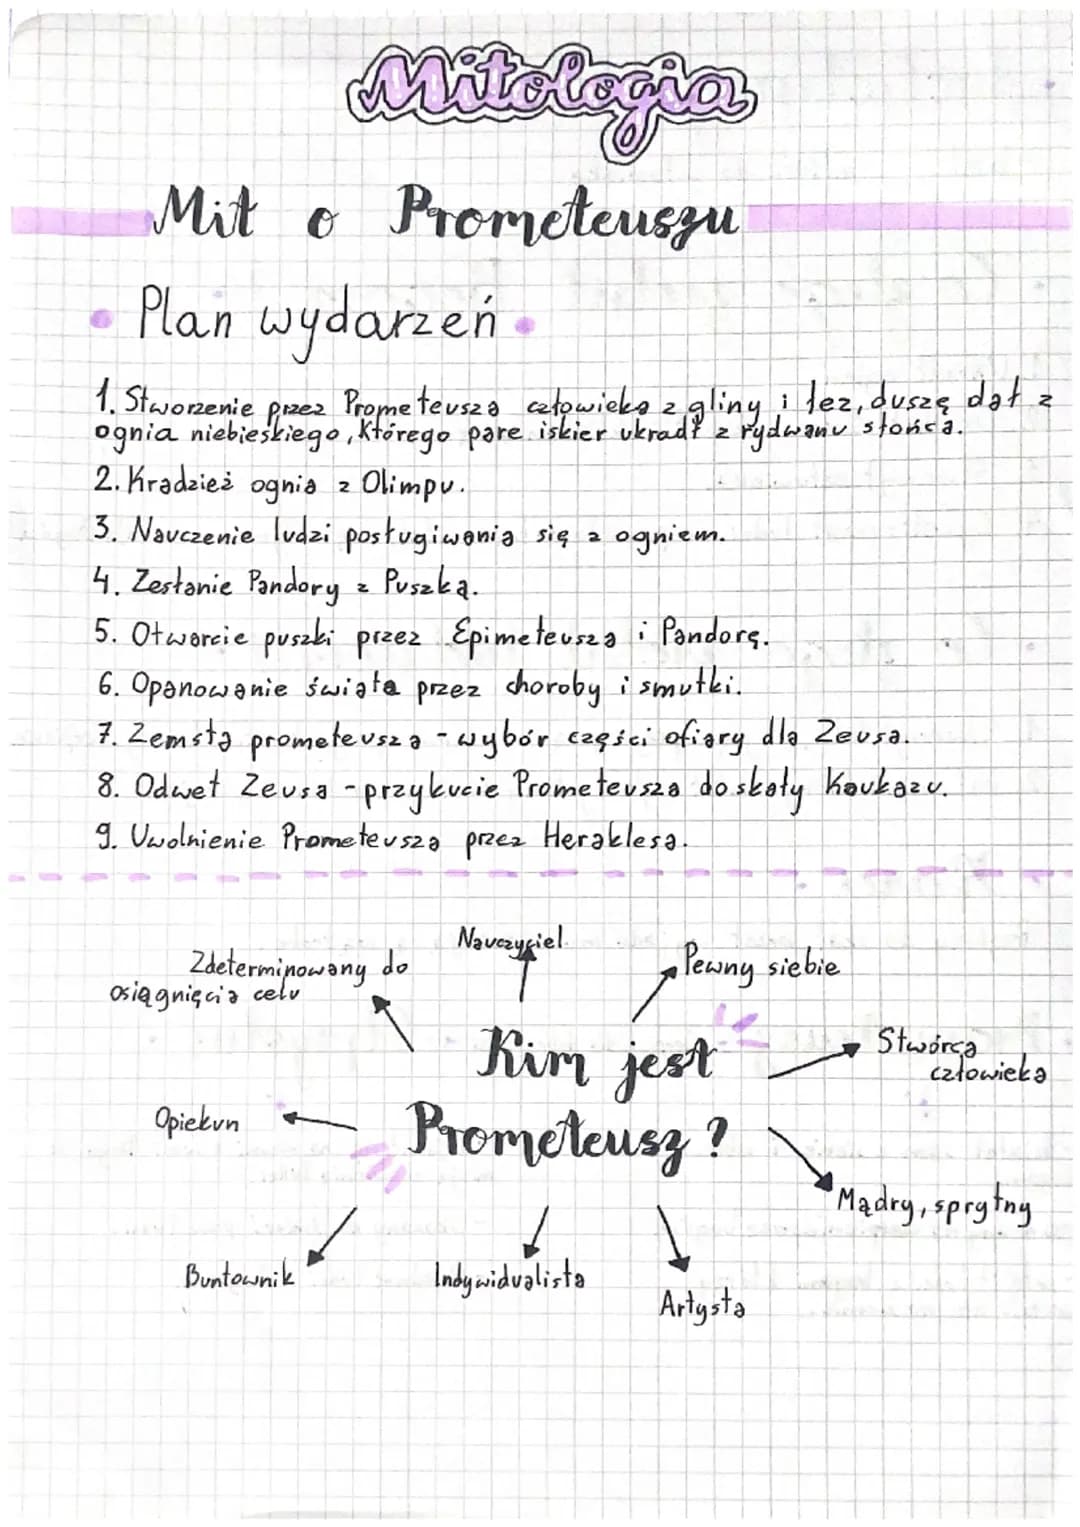 Mitologia
Mit o Prometeuszu
• Plan wydarzeń •
1. Stworzenie przez Prometeusza człowieka z gliny i łez, duszę dał z
ognia niebieskiego, którego parę iskier ukradł z rydwanu słońca.
2. Kradzież ognia z Olimpu.
3. Nauczenie ludzi posługiwania się z ogniem.
4. Zesłanie Pandory z Puszką.
5. Otwarcie puszki przez Epimeteusza i Pandorę.
6. Opanowanie świata przez choroby i smutki.
7. Zemsta prometeusza - wybór części ofiary dla Zeusa.
8. Odwet Zeusa - przykucie Prometeusza do skały Kaukazu.
9. Uwolnienie Prometeusza przez Heraklesa.
Nauczyciel
Zdeterminowany do
osiągnięcia celu
Pewny siebie
Kim jest
Prometeusz?
Stwórca
człowieka
Opiekun
Mądry, sprytny
Buntownik
Indywidualista
Artysta